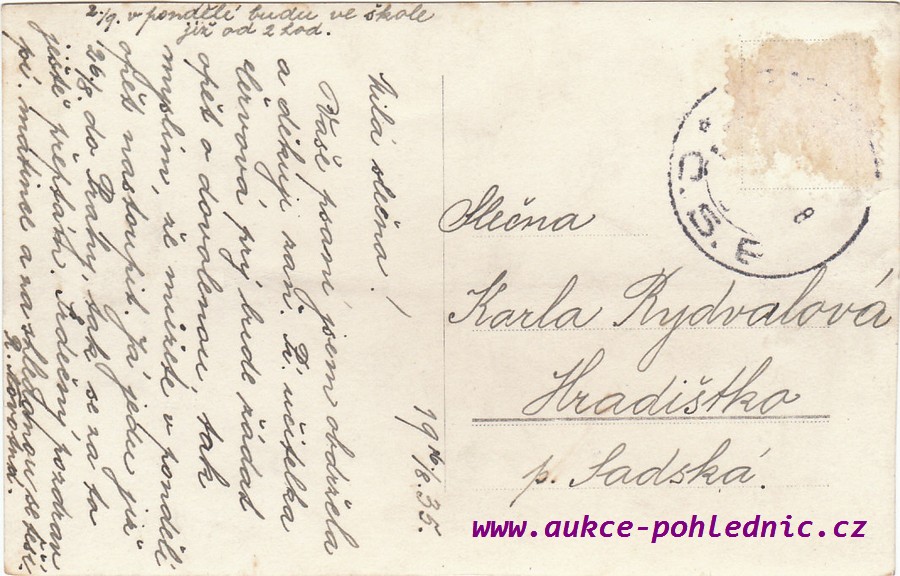 2./9. v pondělí budu ve škole
již od 2 hod.
19 26/8. 35.
Milá slečno!
Vaše psaní jsem obdržela
a děkuji za ně. P. učitelka
prý bude žádat
opět o dovolenou, tak
myslím, že můžete v pondělí
opět nastoupit. Já jedu již
26/8. do Prahy, tak se za to
ještě přeptám. Srdečný pozdrav
pí. matince a na shledanou se těší
Slečna
Karla Rydvalová
Hradištko
p. Sadská.
www.aukce-pohlednic.cz